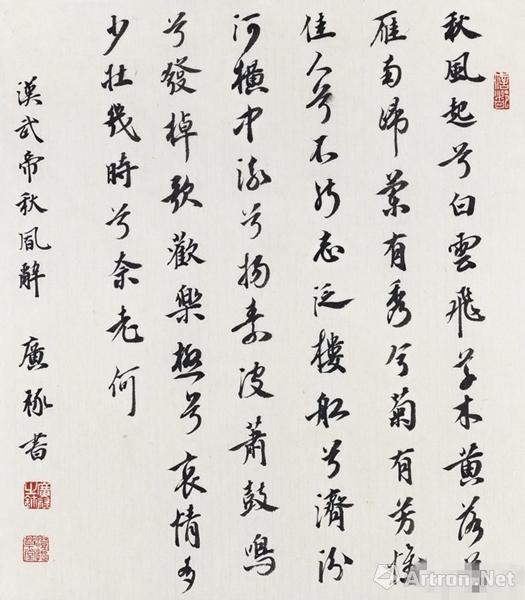 秋風起兮白雲飛草木黃落兮
雁南歸蘭有秀兮菊有芳懷
佳人兮不能忘泛樓船兮濟汾
河橫中流兮揚素波蕭鼓鳴
兮發棹歌歡樂極兮哀情多
少壯幾時兮奈老何
漢武帝秋風辭 廣書
Artron.Net